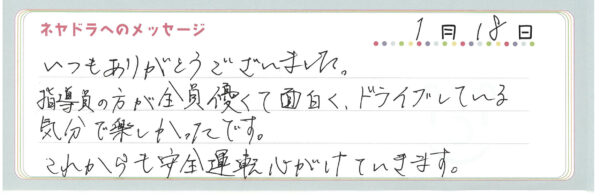 ネヤドラへのメッセージ
1月18日
いつもありがとうございました。
指導員の方が全員優くて面白く、ドライブしている
気分で楽しかったです。
これからも安全運転心がけていきます。